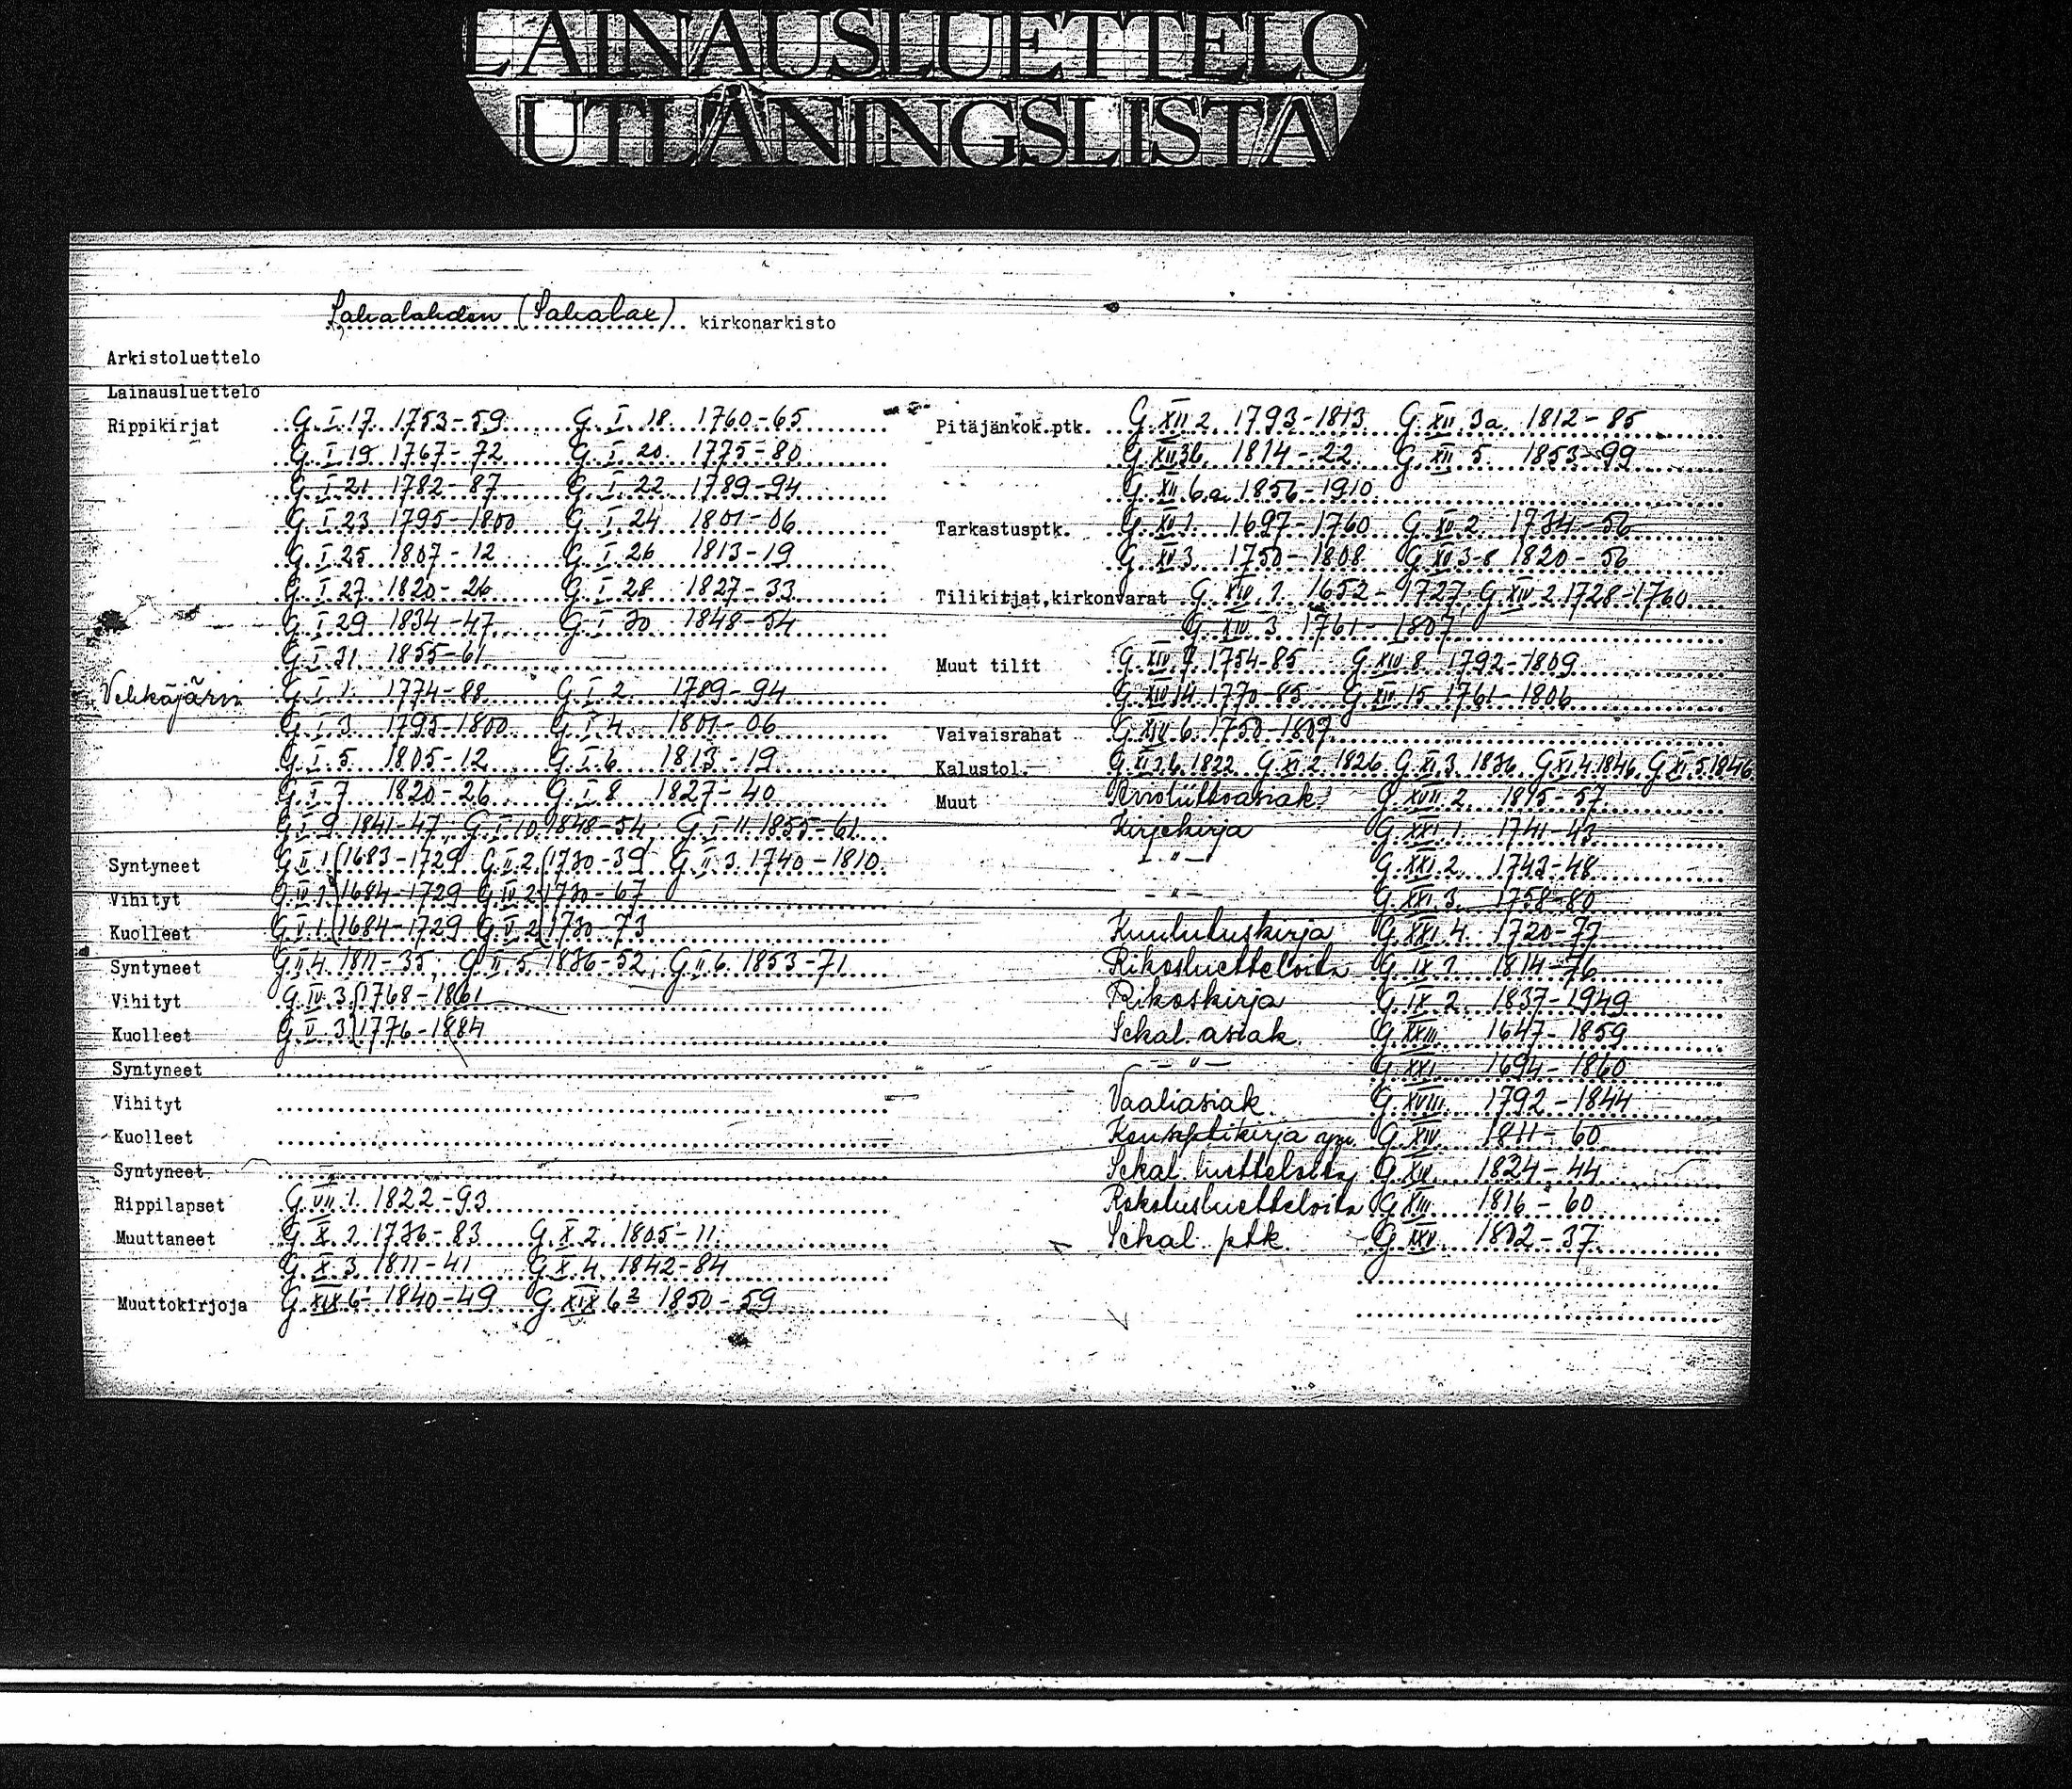 LAINAUSLUETTELO
UTLÅNINGSLISTA
Sahalahden (Sahalax) kirkonarkisto
Arkistoluettelo
Lainausluettelo
Rippikirjat G. I. 17. 1753-59 G. I. 18. 1760-65
G. I 19 1767-72 G. I. 20. 1775-80
G. I 21 1782-87 G. I. 22. 1789-94
G. I. 23 1795-1800 G. I. 24 1801-06
G. I. 25 1807-12 G. I. 26 1813-19
G. I. 27 1820-26 G. I. 28 1827-33
G. I. 29 1834-47 G. I 30 1848-54
G. I. 31. 1855-61
Vehkajärvi G. I. 1. 1774-88 G. I. 2. 1789-94
G. I. 3 1795-1800 G. I. 4 1801-06
G. I. 5 1805-12 G. I. 6 1813-19
G. I. 7 1820-26 G. I. 8 1827-40
G. I 9 1841-47; G. I. 10 1848-54; G. I. 11. 1855-61
Syntyneet G. II. 1 1683-1729 G. II. 2. 1730-39 G. II. 3. 1740-1810
Vihityt G. IV. 1. 1684-1729 G. IV. 2 1730-67
Kuolleet G. V. 1. 1684-1729 G. V. 2 1730-73
Syntyneet G. II. 4. 1811-35; G. II. 5. 1836-52; G. II. 6. 1853-71
Vihityt G. IV. 3. 1768-1861
Kuolleet G. V. 3 1776-1884
Syntyneet
Vihityt
Kuolleet
Syntyneet
Rippilapset G. VII. 1. 1822-93
Muuttaneet G. X. 1. 1736-83 G. X. 2. 1805-11
G. X. 3. 1811-41 G. X. 4. 1842-84
Muuttokirjoja G. XIX 6 1840-49 G. XIX 6 1850-59
Pitäjänkok.ptk. G. XII 2. 1793-1813 G. XII. 3a. 1812-85
G. XII 3b. 1814-22. G. XII. 5. 1853-99
G. XII. 6.a. 1856-1910
Tarkastusptk. G. XV 1. 1697-1760 G. XV 2. 1734-56
G. XV 3 1750-1808 G. XV 3-8 1820-56
Tilikirjat,kirkonvarat G. XIV. 1. 1652-1727 G. XIV 2 1728-1760
G. XIV. 3 1761-1807
Muut tilit G. XIV. 7. 1754-85 G. XIV 8. 1792-1809
G. XIV 14 1770-85 G. XIV. 15 1761-1806
Vaivaisrahat G. XIV. 6. 1750-1807
Kalustol. G. XI. 1.6. 1822 G. XI. 2. 1826. G. XI. 3. 1836. G. XI. 4. 1846. G. XI. 5. 1846
Muut G. XVII. 2. 1815-57
Kirjekirja G. XXI 1. 1741-43
- " - G. XXI. 2. 1743-48
- " - G. XXI. 3. 1758-80
Kuulutuskirja G. XXI. 4. 1720-77
Rikosluetteloita G. IX. 1. 1814-76
Rikoskirja G. IX. 2. 1837-1949
Sekal. asiak. G. XXIII. 1647-1859
- " - G. XXI. 1694-1860
Vaaliasiak. G. XVIII. 1792-1844
Konseptikirja ym. G. XIV. 1811-60
Sekal. luetteloita G. XIV. 1824-44
Rokotusluetteloita G. XIII. 1816-60
Sekal. ptk. 1802-37